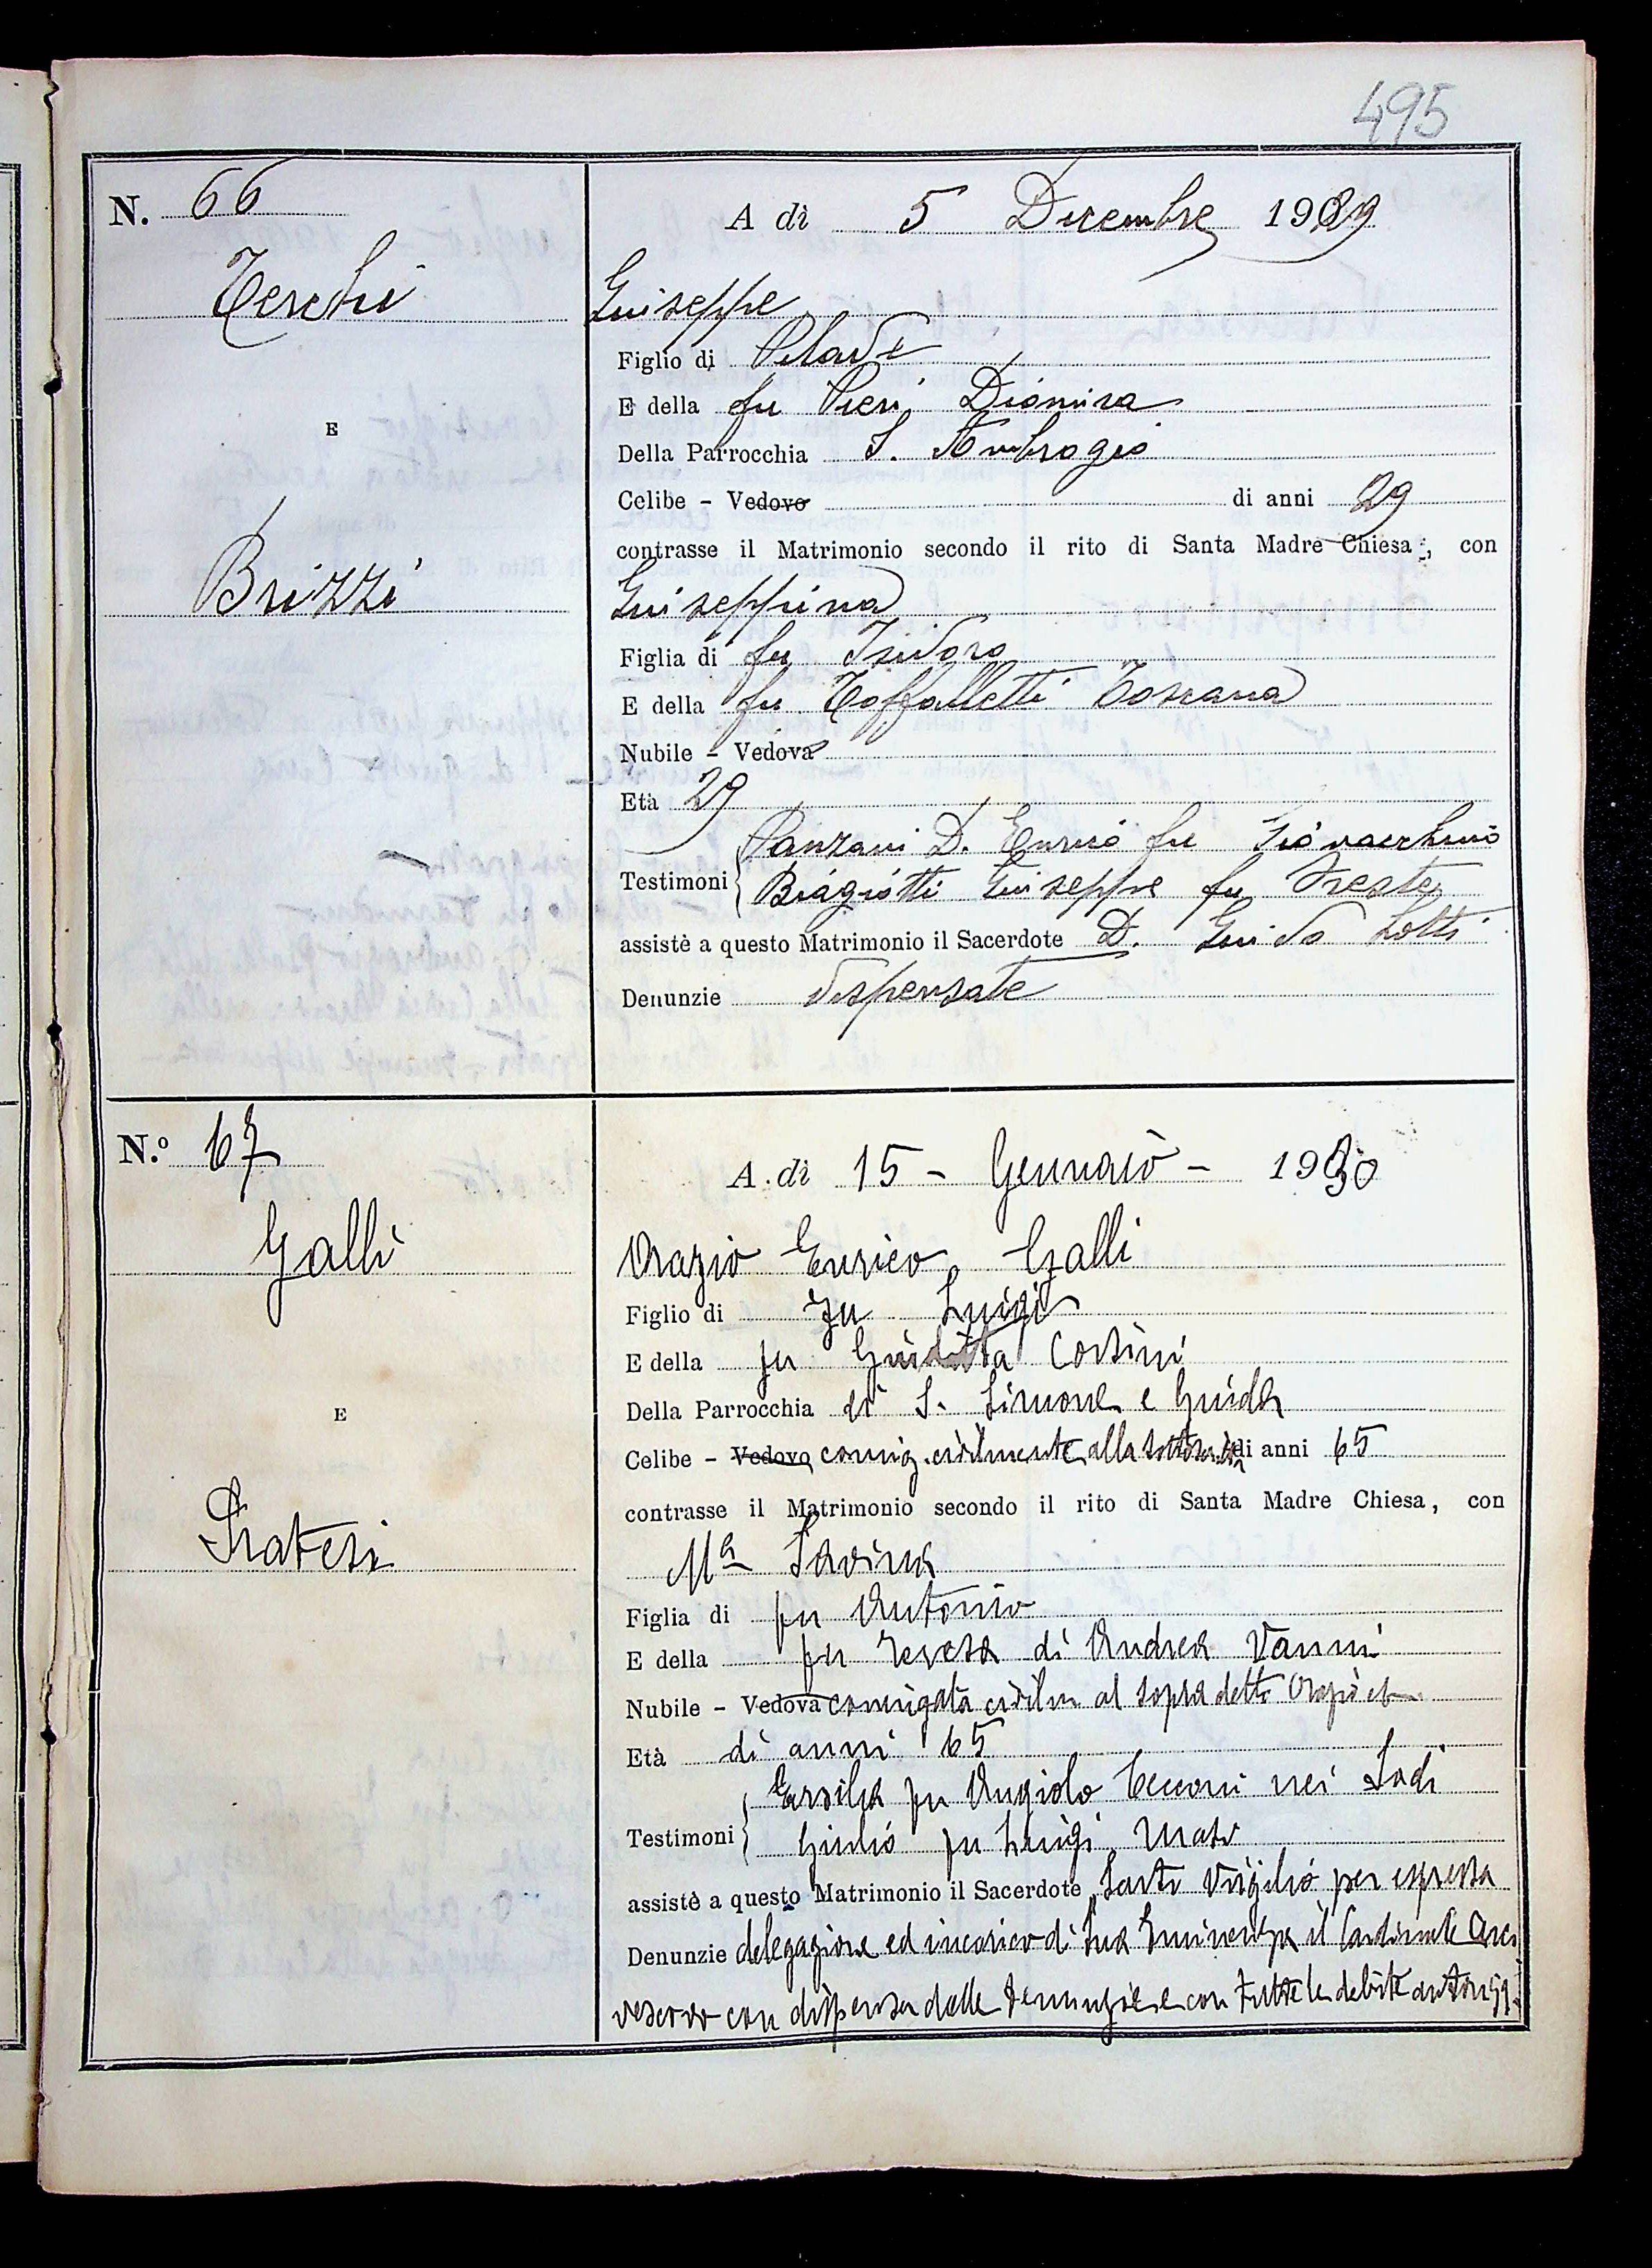 495
N. 66
A dì 5 Decembre 1929
Terchi
Giuseppe
Figlio di Pilade
E della fu Pieri Dianira
E
Della Parrocchia S. Ambrogio
Celibe - Vedovo di anni 29
contrasse il Matrimonio secondo il rito di Santa Madre Chiesa, con
Brizzi
Giuseppina
Figlia di fu Isidoro
E della fu Toffalletti Toscana
Nubile - Vedova
Età 29
Panzani D. Enrico fu Giovacchino
Testimoni Biagiotti Giuseppe fu Oreste
assistè a questo Matrimonio il Sacerdote D. Guido Lotti
Denunzie dispensate
N.º 67
A dì 15 - Gennaio - 1930
Galli
Orazio Enrico Galli
Figlio di fu Luigi
E della fu Giuditta Corsini
Della Parrocchia di S. Simone e Giuda
E
Celibe - Vedovo coniug. civilmente alla di anni 65
contrasse il Matrimonio secondo il rito di Santa Madre Chiesa, con
Pratesi
Mª Savina
Figlia di fu Antonio
E della fu Teresa di Andrea Vanni
Nubile - Vedova coniugata civilm al sopra detto Orazio
Età di anni 65
Ersilia fu Angiolo Cecconi nei Lodi
Testimoni Giulio fu Luigi
assistè a questo Matrimonio il Sacerdote Sarti Virgilio per espressa
Denunzie delegazione ed incarico di Sua Eminenza il Cardinale Arci
vescovo con dispensa delle denunzie e con tutte le debite autorizz.